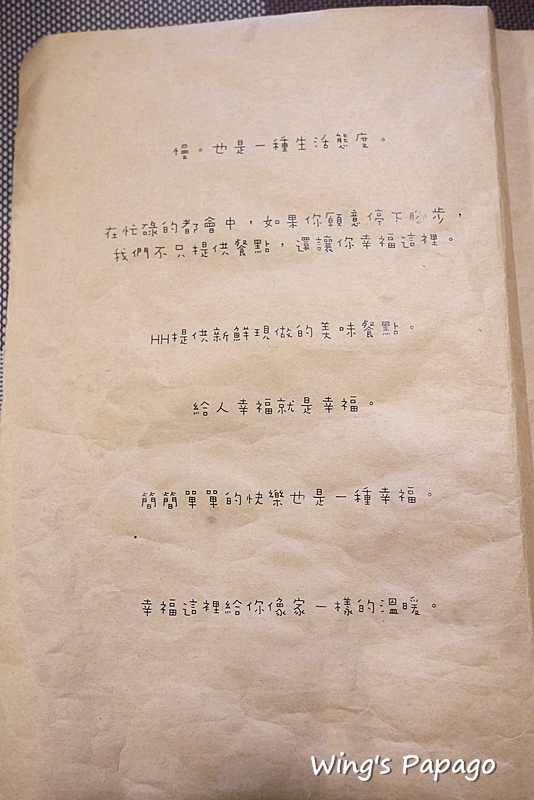 慢。也是一種生活態度。
在忙碌的都會中，如果你願意停下腳步，
我們不只提供餐點，還讓你幸福這裡。
HH提供新鮮現做的美味餐點。
給人幸福就是幸福。
簡簡單單的快樂也是一種幸福。
幸福這裡給你像家一樣的溫暖。
Wing's Papago